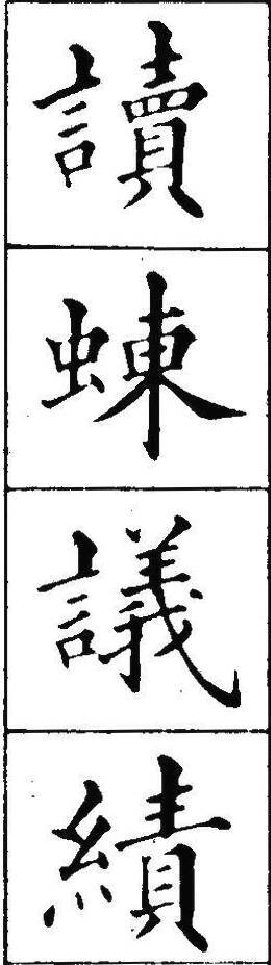 讀
蝀
議
績